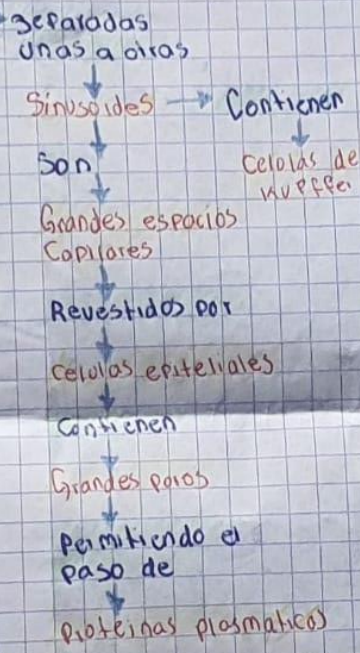 Separadas
unas a otras
Sinusoides → Contienen
Celolas de
Kupffer
Son
Grandes espacios
Capilares
Revestidos por
celulas epiteliales
Contienen
Grandes poros
Permitiendo el
paso de
proteinas plasmaticas